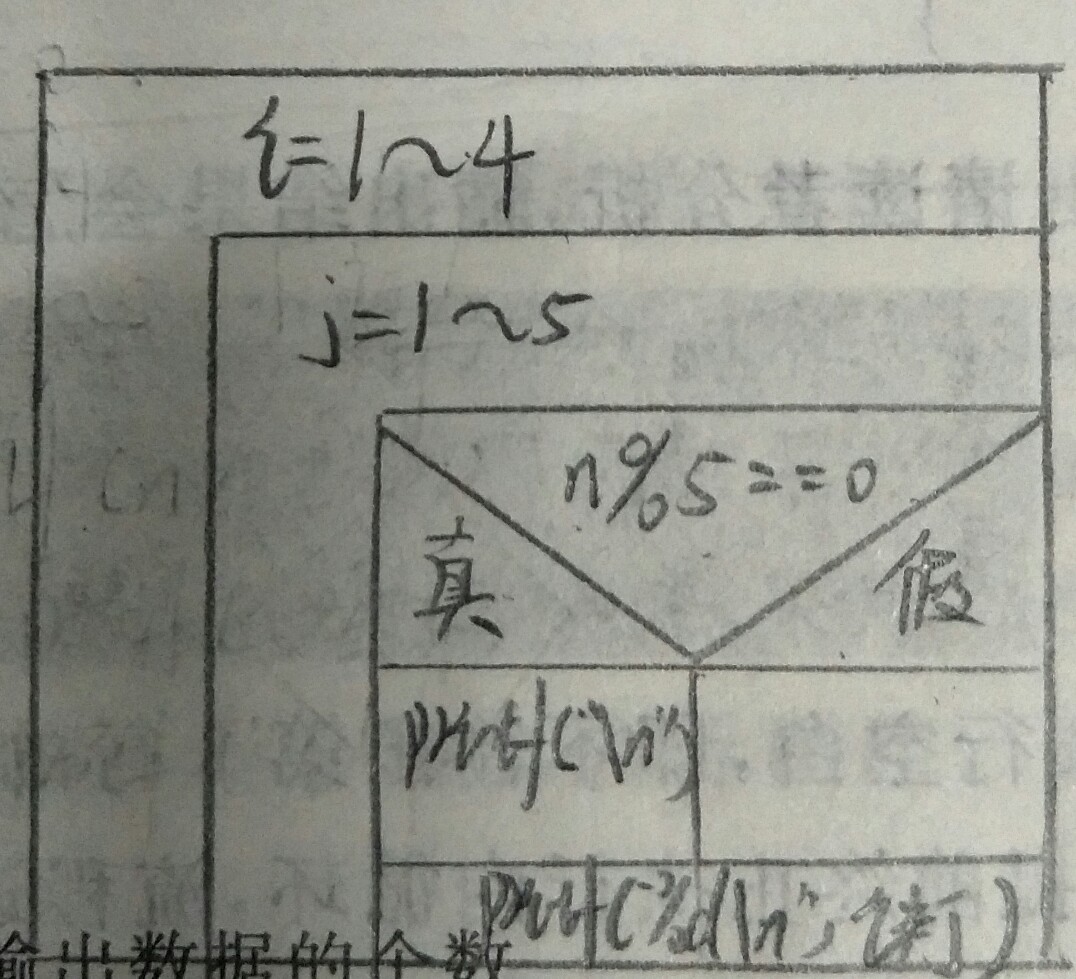 i=1~4
j=1~5
n%5==0
真 假
printf("\n")
printf("%d\n", i*j)
输出数据的个数